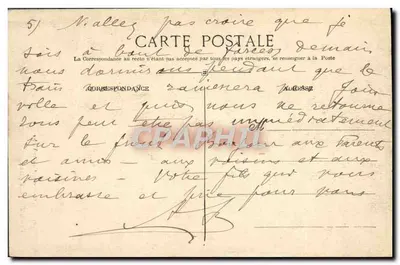 5) N'allez pas croire que je
sois à bout de forces demain
CARTE POSTALE
La Correspondance au recto n'étant pas acceptée par tous les pays étrangers, se renseigner à la Poste
nous dormirons pendant que le
CORRESPONDANCE
train ramènera pour
volle et puis nous ne retourne
rons peut être pas immédiatement
CPAPHIL
sur le front Bonjour aux Parents
et amis - aux voisins et aux
voisines - Votre fils qui vous
embrasse et prie pour vous